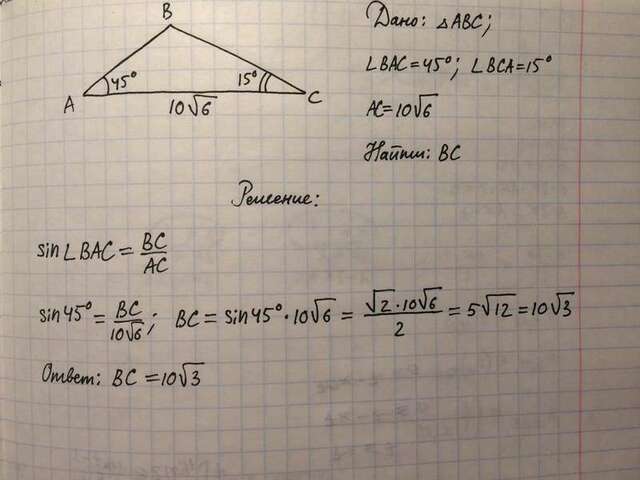 B
Дано: △ABC;
45° 15°
∠BAC = 45°; ∠BCA = 15°
A C
10√6
AC = 10√6
Найти: BC
Решение:
sin∠BAC = BC/AC
sin45° = BC/10√6; BC = sin45° · 10√6 = √2 · 10√6/2 = 5√12 = 10√3
Ответ: BC = 10√3